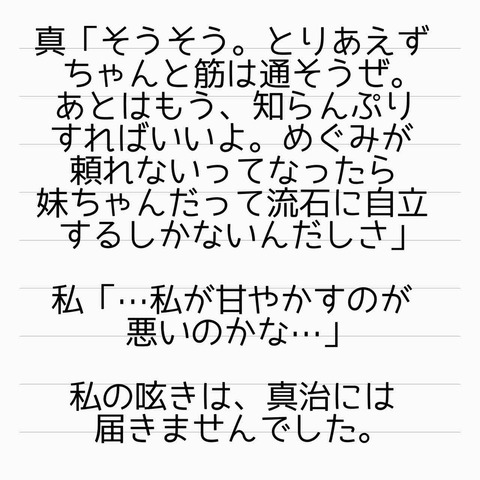 真「そうそう。とりあえず
ちゃんと筋は通そうぜ。
あとはもう、知らんぷり
すればいいよ。めぐみが
頼れないってなったら
妹ちゃんだって流石に自立
するしかないんだしさ」
私「…私が甘やかすのが
悪いのかな…」
私の呟きは、真治には
届きませんでした。